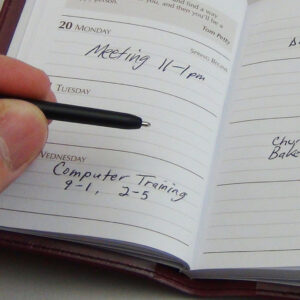 find a way
and then you'll be a
Tom Petty
20 MONDAY
SPRING BEGINS
Meeting 11-1pm
TUESDAY
WEDNESDAY
Computer Training
9-1, 2-5